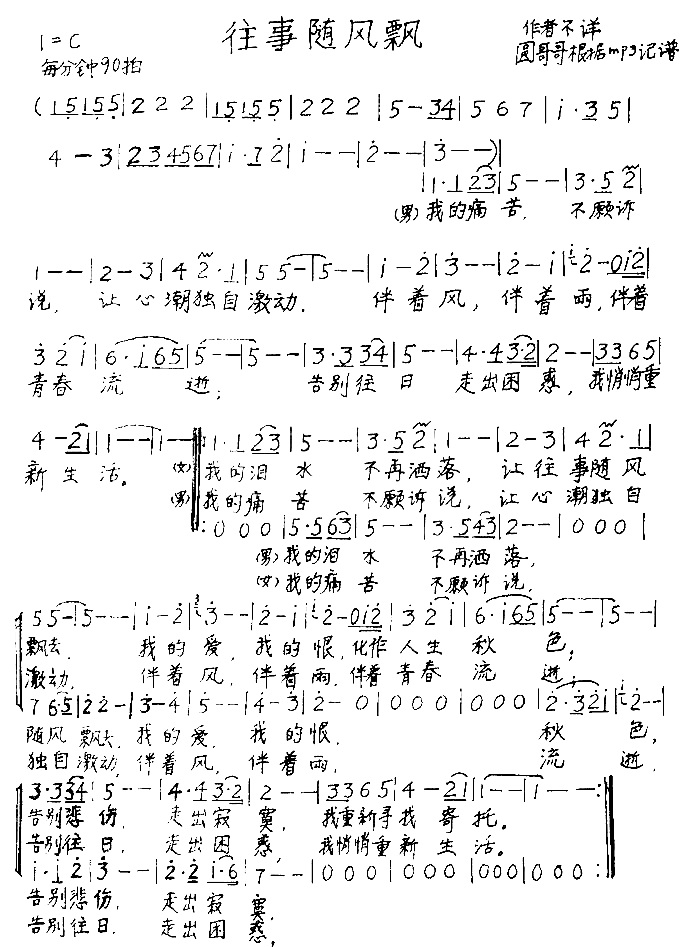 往事随风飘
作者不详
1=C
圆哥哥根据mp3记谱
每分钟90拍
(15155|222|15155|222|5-34|567|i·35|
4-3|234567|i·72|i--|2--|3--)|
|1·123|5--|3·52|
(男)我的痛苦, 不愿诉
1--|2-3|42·1|55--|5--|i-2|3--|2-i|2-0i2|
说, 让心潮独自激动. 伴着风, 伴着雨, 伴着
32i|6·i65|5--|5--|3·334|5--|4·432|2--|3365|
青春流逝; 告别往日 走出困惑, 我悄悄重
4-21|1--|1--|:1·123|5--|3·52|1--|2-3|42·1|
新生活。 (女)我的泪水 不再洒落, 让往事随风
(男)我的痛苦 不愿诉说, 让心潮独自
:000|5·563|5--|3·543|2--|000|
(男)我的泪水 不再洒落,
(女)我的痛苦 不愿诉说,
55--|5--|i-2|3--|2-i|2-0i2|32i|6·i65|5--|5--|
飘去. 我的爱, 我的恨, 化作人生秋色;
激动, 伴着风, 伴着雨, 伴着青春流逝;
765|22-|3-4|5--|4-3|2-0|000|000|2·32i|2--|
随风飘去, 我的爱, 我的恨, 秋色,
独自激动, 伴着风, 伴着雨, 流逝
3·334|5--|4·432|2--|3365|4-21|1--|1--:|
告别悲伤, 走出寂寞, 我重新寻找寄托。
告别往日, 走出困惑 我悄悄重新生活。
i·i2|3--|2·2i·6|7--|000|000|000|000|
告别悲伤, 走出寂寞.
告别往日, 走出困惑;